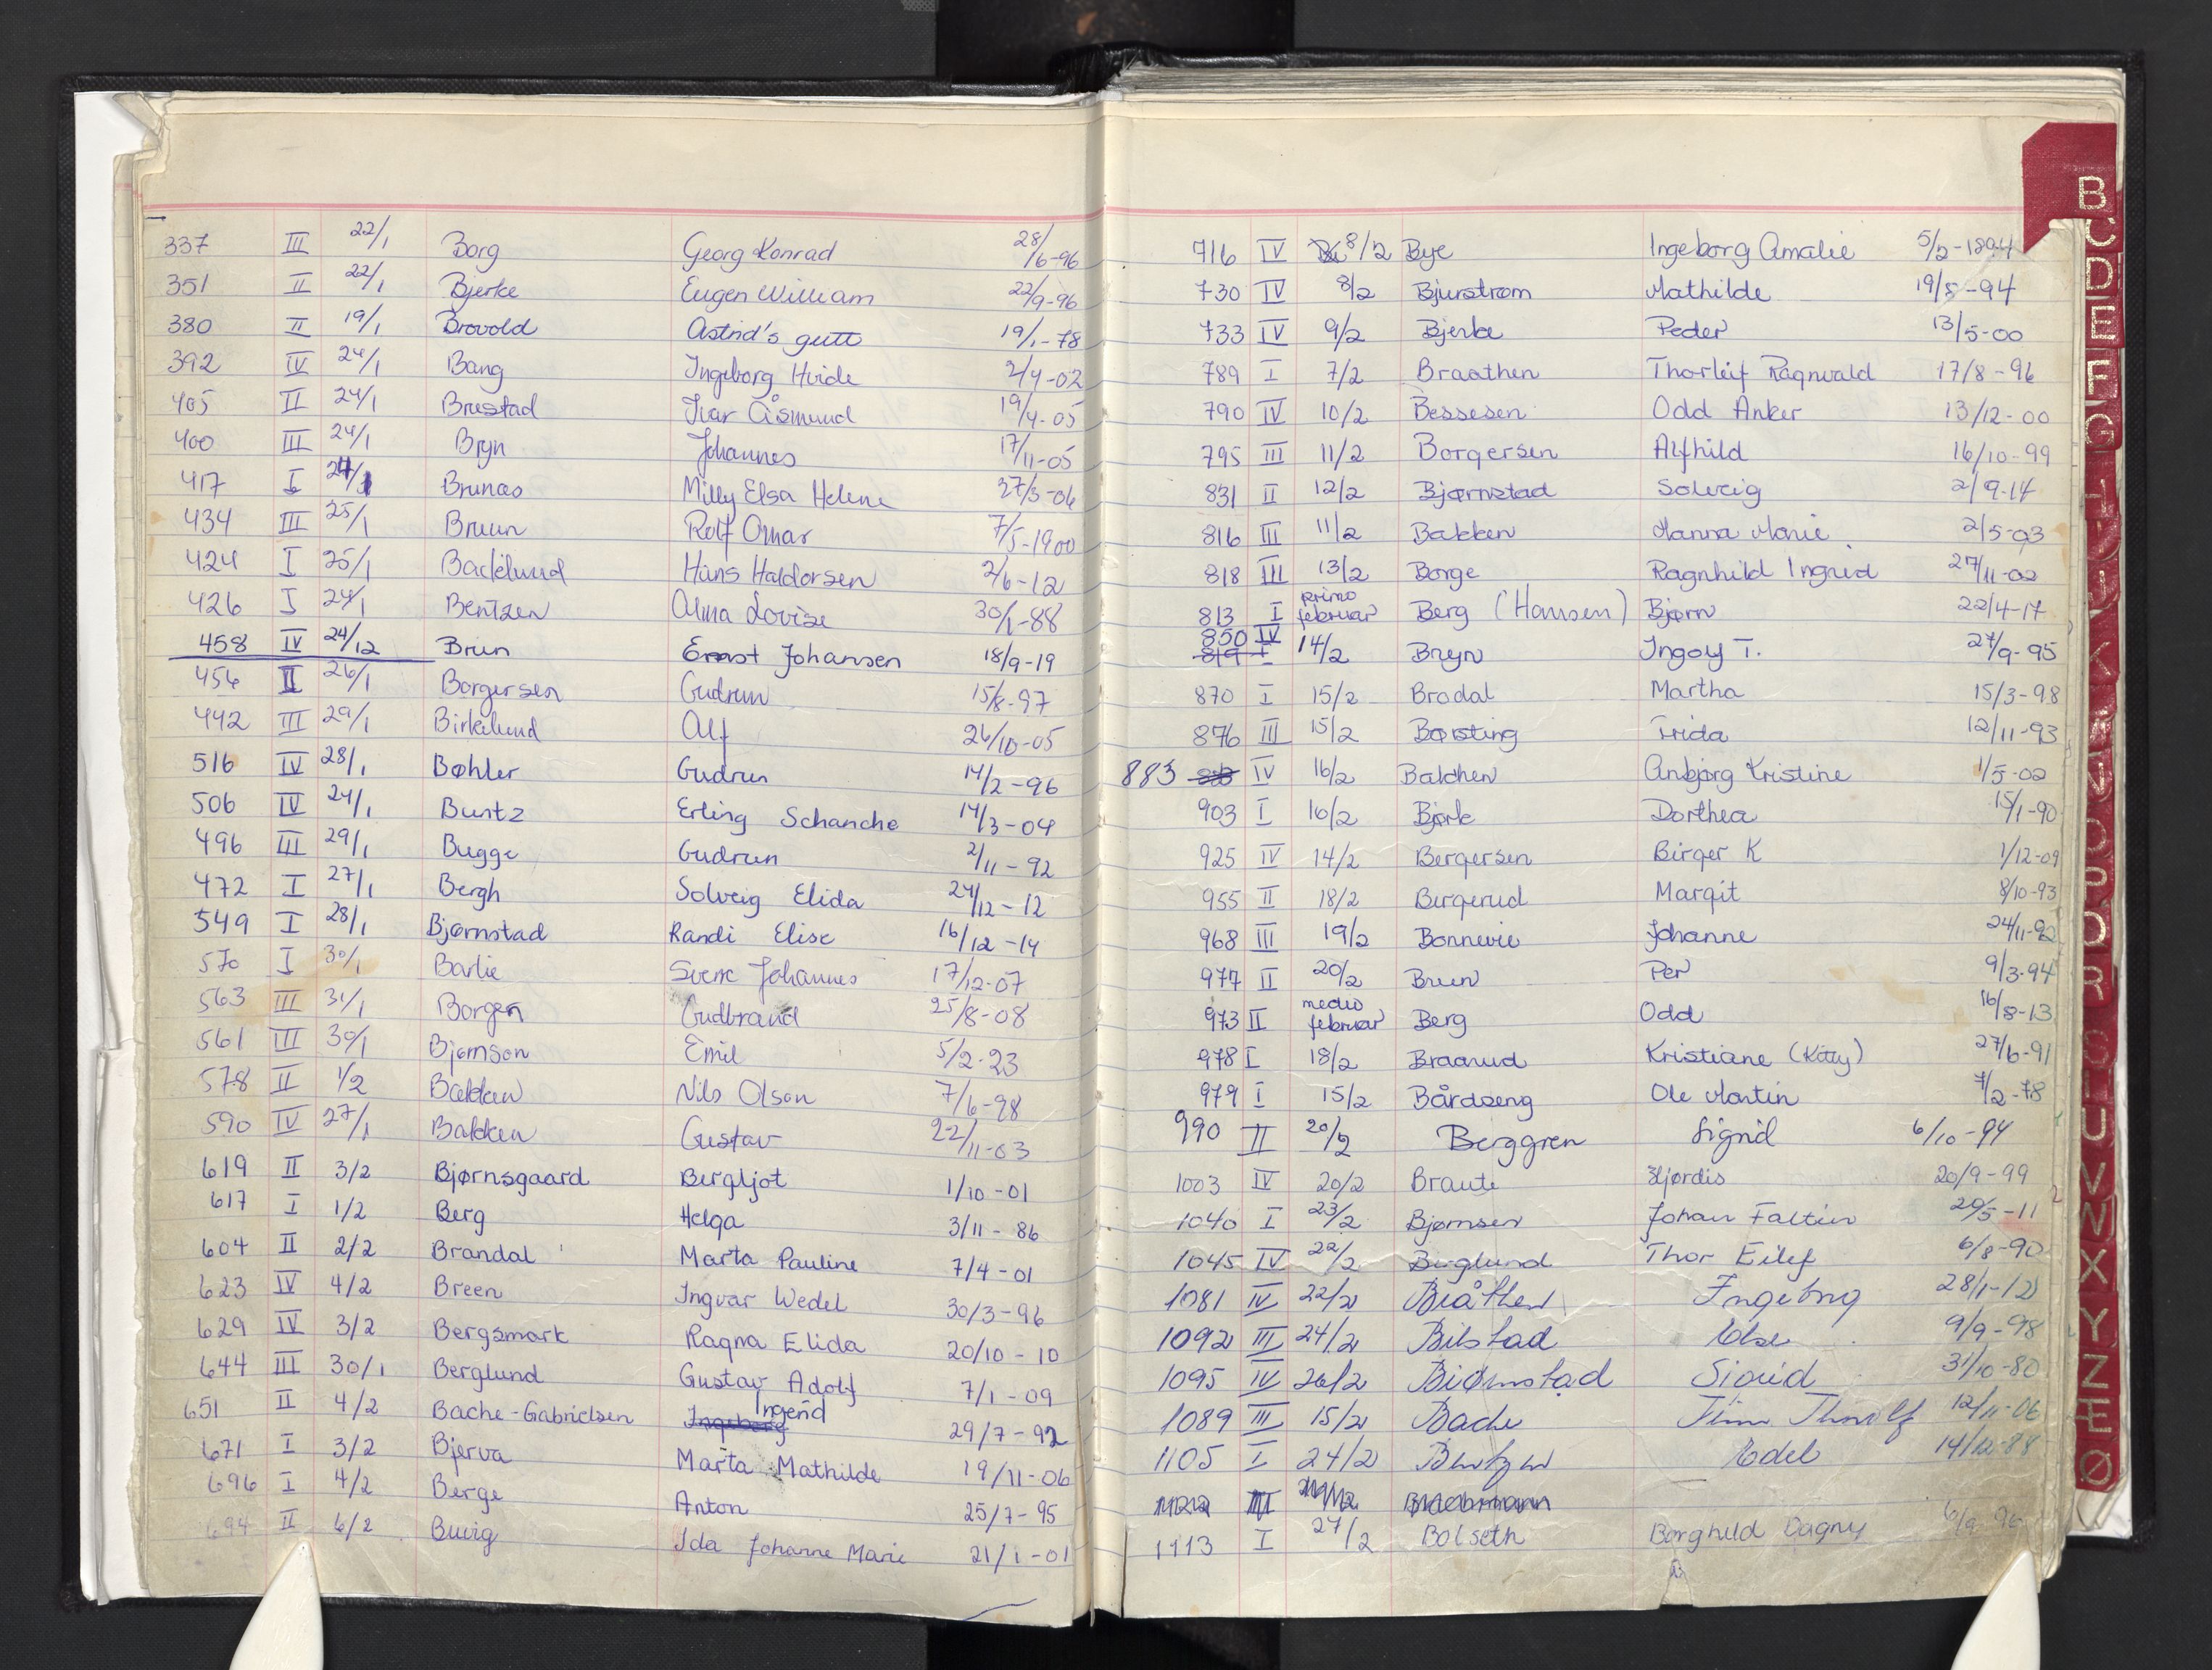 337 III 22/1 Borg Georg Konrad 28/6-96
351 II 22/1 Bjerke Eugen William 22/9-96
380 II 19/1 Brovold Astrid's gutt 19/1-78
392 IV 24/1 Bang Ingeborg Hvide 2/4-02
405 II 24/1 Brustad Ivar Åsmund 19/4-05
400 III 24/1 Bryn Johannes 17/11-05
417 I 24/1 Brunæs Milly Elsa Helene 27/3-06
434 III 25/1 Bruun Rolf Omar 7/5-1900
424 I 25/1 Backelund Hans Haldorsen 2/6-12
426 I 24/1 Bentzen Alma Lovise 30/1-88
458 IV 24/12 Brun Ernst Johansen 18/9-19
456 II 26/1 Borgersen Gudrun 15/8-97
442 III 29/1 Birkelund Alf 26/10-05
516 IV 28/1 Bøhler Gudrun 14/2-96
506 IV 24/1 Buntz Erling Schanche 14/3-04
496 III 29/1 Bugge Gudrun 2/11-92
472 I 27/1 Bergh Solveig Elida 24/12-12
549 I 28/1 Bjørnstad Randi Elise 16/12-14
570 I 30/1 Barlie Sverre Johannes 17/12-07
563 III 31/1 Borgen Gudbrand 25/8-08
561 III 30/1 Bjørnson Emil 5/2-23
578 II 1/2 Bakken Nils Olson 7/6-98
590 IV 27/1 Bakken Gustav 22/11-03
619 II 3/2 Bjørnsgaard Bergljot 1/10-01
617 I 1/2 Berg Helga 3/11-86
604 II 2/2 Brandal Marta Pauline 7/4-01
623 IV 4/2 Breen Ingvar Wedel 30/3-96
629 IV 3/2 Bergsmark Ragna Elida 20/10-10
644 III 30/1 Berglund Gustav Adolf 7/1-09
651 II 4/2 Bache-Gabrielsen Ingeborg Ingerid 29/7-92
671 I 3/2 Bjerva Marta Mathilde 19/11-06
696 I 4/2 Berge Anton 25/7-95
694 II 6/2 Buvig Ida Johanne Marie 21/1-01
716 IV 8/2 Bye Ingeborg Amalie 5/2-1894
730 IV 8/2 Bjurstrøm Mathilde 19/8-94
733 IV 9/2 Bjerke Peder 13/5-00
789 I 7/2 Braathen Thorleif Ragnvald 17/8-96
790 IV 10/2 Bessesen Odd Anker 13/12-00
795 III 11/2 Borgersen Alfhild 16/10-99
831 II 12/2 Bjørnstad Solveig 2/9-14
816 III 11/2 Bakken Hanna Marie 2/5-03
818 III 13/2 Borge Ragnhild Ingrid 27/11-02
813 I primo februar Berg (Hansen) Bjørn 22/4-17
850 IV
819 I 14/2 Bryn Ingolf T. 27/9-95
870 I 15/2 Brodal Martha 15/3-98
876 III 15/2 Børsting Frida 12/11-93
883 IV 16/2 Bakken Anbjørg Kristine 1/5-02
903 I 16/2 Bjørk Dorthea 15/1-90
925 IV 14/2 Bergersen Birger K 1/12-09
955 II 18/2 Bergerud Margit 8/10-93
968 III 19/2 Bonnevie Johanne 24/11-92
977 II 20/2 Bruun Per 9/3-94
973 II medio februar Berg Odd 16/8-13
978 I 18/2 Braarud Kristiane (Kitty) 27/6-91
979 I 15/2 Bårdseng Ole Martin 7/2-78
990 II 20/2 Berggren Signid 6/10-94
1003 IV 20/2 Braute Hjørdis 20/9-99
1040 I 23/2 Bjørnsen Johan Faltin 20/5-11
1045 IV 22/2 Berglund Thor Eilef 6/8-90
1081 IV 22/2 Bråthen Ingeborg 28/1-12
1092 III 24/2 Bilstad Else 9/9-98
1095 IV 26/2 Bjørnstad Sigrid 31/10-80
1089 III 15/2 Bache Finn Thorolf 12/11-06
1105 I 24/2 Bentzen Edel 14/12-88
1113 I 27/2 Bolseth Borghild Dagny
B
C
D
E
F
G
I
J
K
N
O
P
R
S
T
U
V
W
X
Y
Z
Æ
Ø